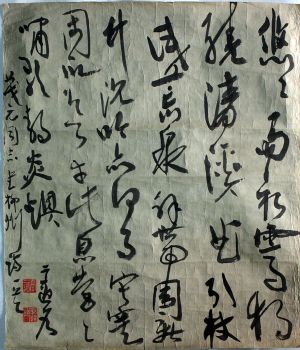 悠悠雨初霽獨
繞清溪曲引杖
試荒泉解帶圍新
竹沉吟亦何事寂寞
固所欲幸此息營營
嘯歌靜炎燠
元同志正柳州詩一首